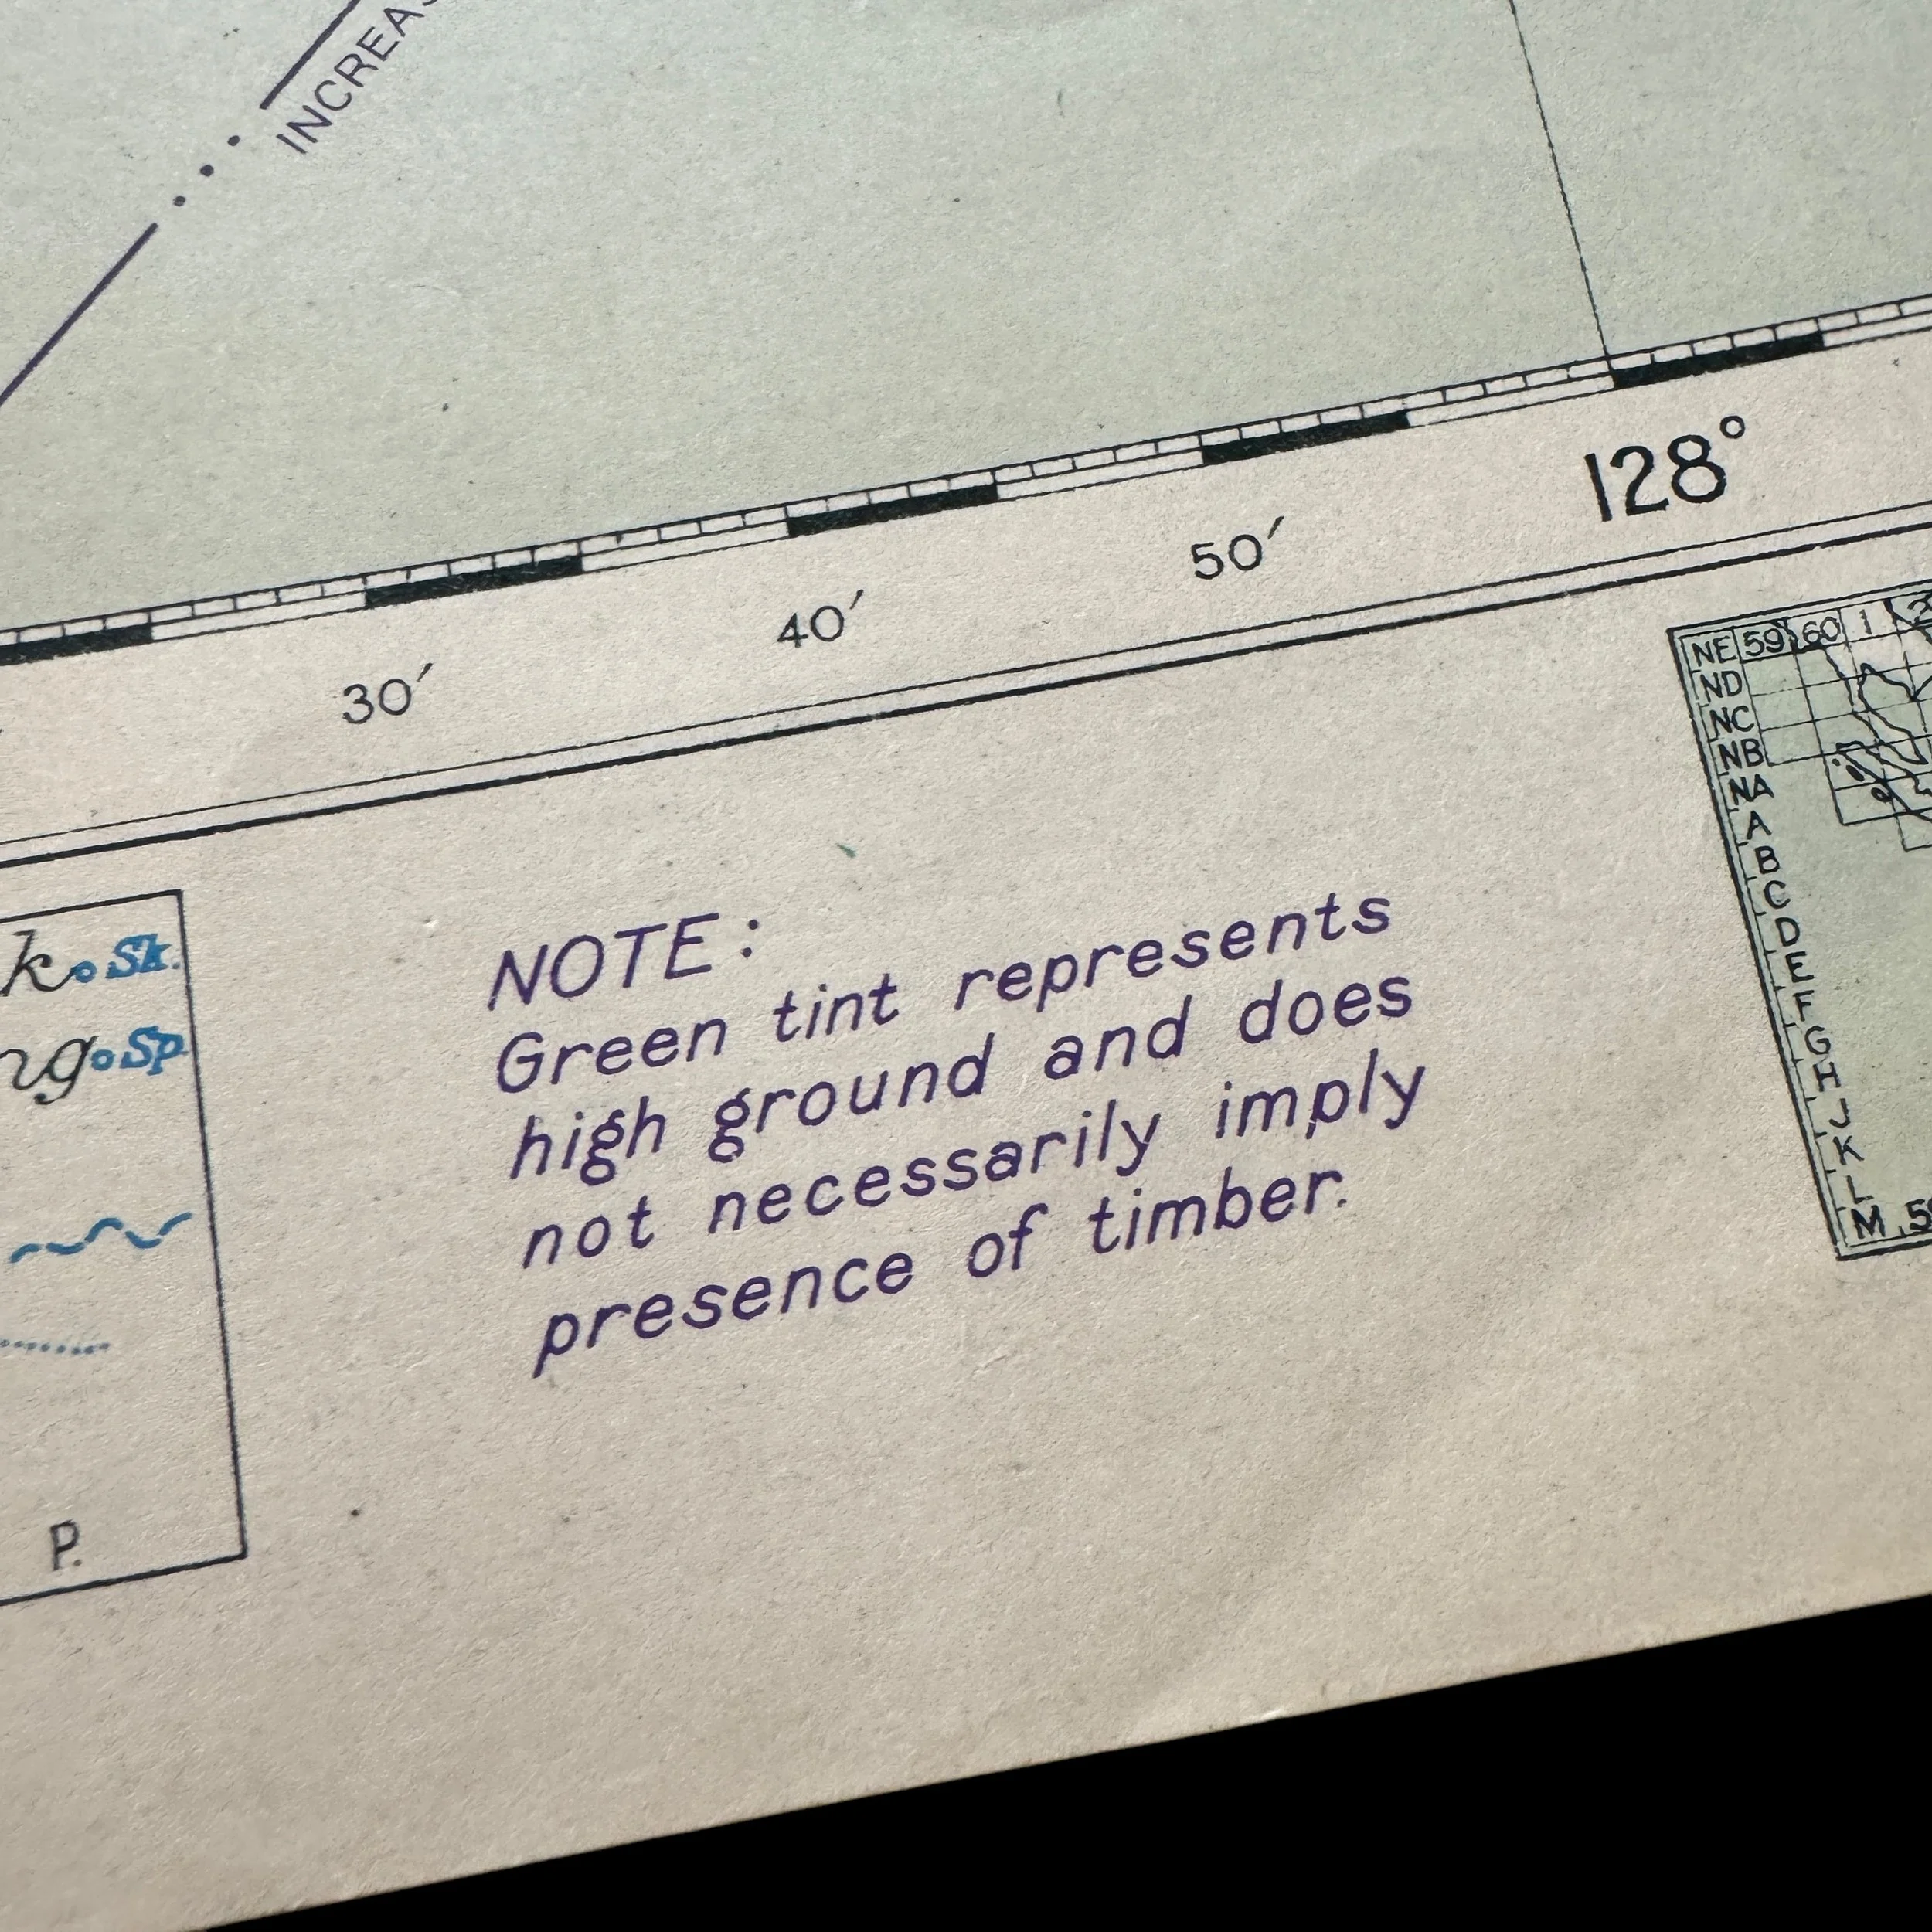 128°
50′
40′
30′
NE 59 60 1
ND
NC
NB
NA
A
B
C
D
E
F
G
H
J
K
L
M
k Sk.
ng Sp.
P.
NOTE:
Green tint represents
high ground and does
not necessarily imply
presence of timber.